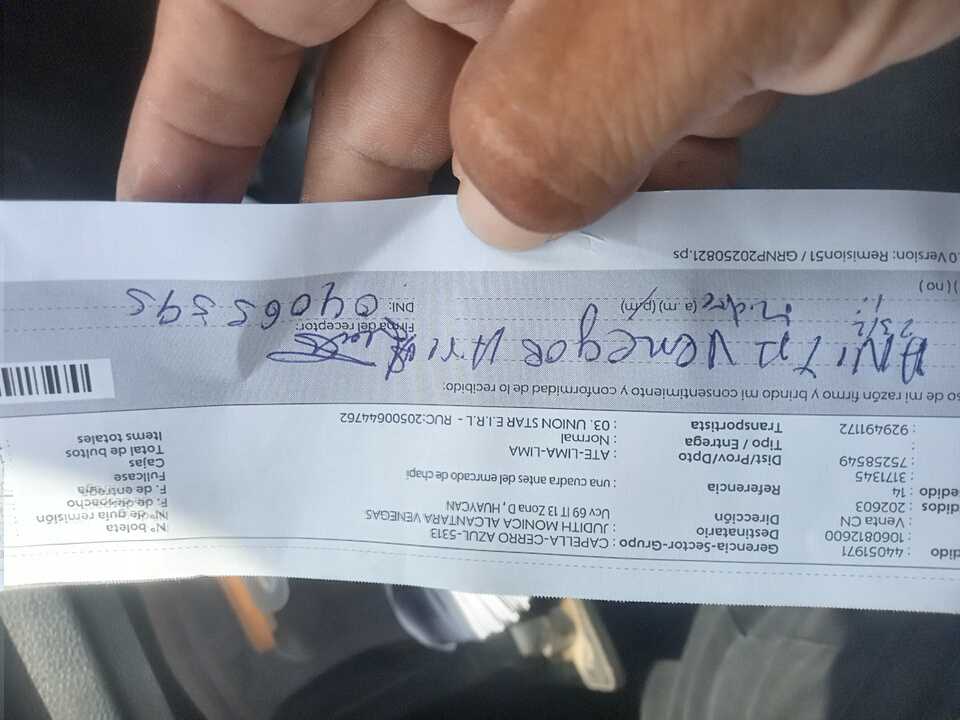 dido : 44051971 Gerencia-Sector-Grupo : CAPELLA-CERRO AZUL-5313
: 1060812600 Destinatario : JUDITH MONICA ALCANTARA VENEGAS Nº boleta
: Venta CN Dirección Ucv 69 lT 13 Zona D , HUAYCAN Nº de guía remisión
didos : 202603 F. de despacho
edido : 14 Referencia : una cuadra antes del emrcado de chapi F. de entrega
: 3171345 Fullcase
: 75258549 Dist/Prov/Dpto : ATE-LIMA-LIMA Cajas
: Tipo / Entrega : Normal Total de bultos
: 929491172 Transportista : 03. UNION STAR E.I.R.L - RUC:20500644762 Items totales
so de mi razón firmo y brindo mi consentimiento y conformidad de lo recibido:
Venegas
Firma del receptor:
madre (a .m) (p/m) DNI: 04065395
) ( no )
.0 Version: Remision51 / GRNP20250821.ps